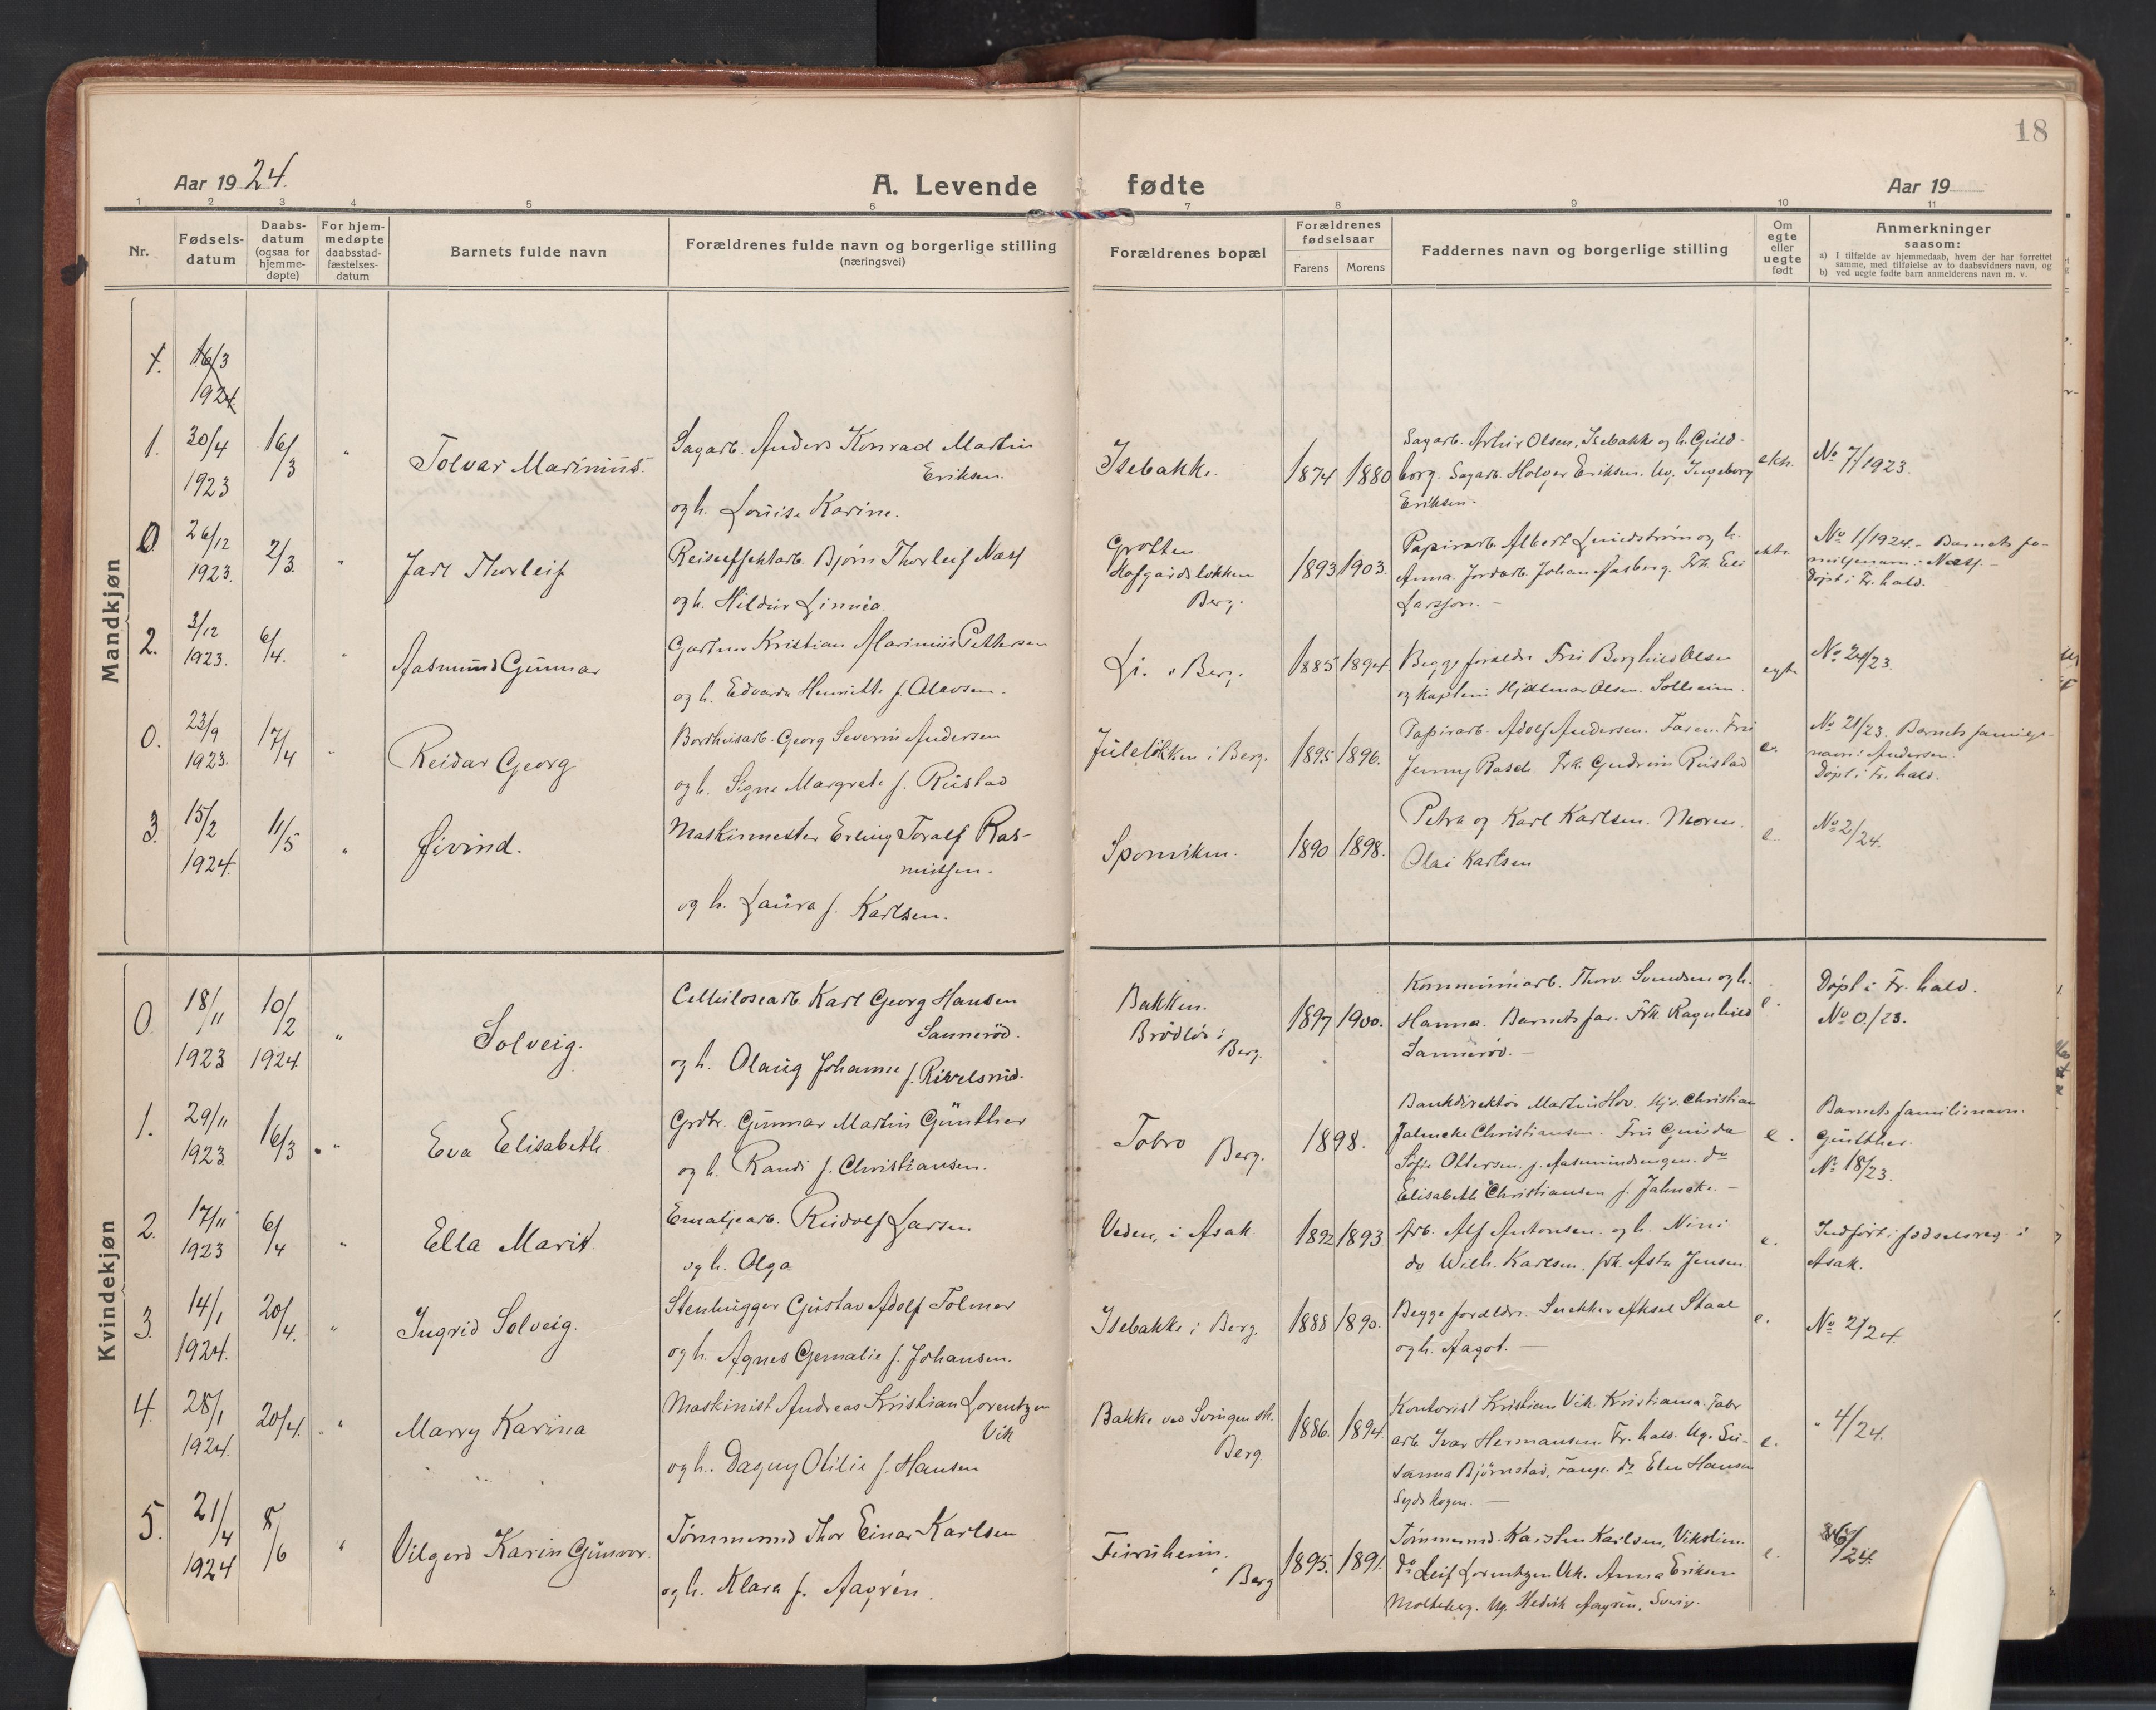 18
Aar 1924.
A. Levende fødte
Aar 19
1 2 3 4 5 6 7 8 9 10 11
Nr.
Fødselsdatum
Daabsdatum (ogsaa for hjemmedøpte)
For hjemmedøpte daabsstadfæstelsesdatum
Barnets fulde navn
Forældrenes fulde navn og borgerlige stilling
(næringsvei)
Forældrenes bopæl
Forældrenes fødselsaar
Farens Morens
Faddernes navn og borgerlige stilling
Om egte eller uegte født
Anmerkninger
saasom:
a) I tilfælde av hjemmedaab, hvem der har forrettet samme, med tilføielse av to daabsvidners navn, og
b) ved uegte fødte barn anmelderens navn m. v.
Mandkjøn
1. 16/3
1924
1. 30/4 1923 16/3 " Tolvar Marinius.
Sagarb. Anders Konrad Martin
Eriksen
og h. Lovise Karine.
Isebakke. 1874 1880
Sagarb. Artur Olsen, Isebakke og h. Guld-
borg. Sagarb. Holger Eriksen. Ug. Ingeborg
Eriksen.
ekte. No 7/1923.
0 26/12 1923. 2/3. " Jarl Thorleif
Reiseeffektarb. Bjørn Thorleif Næss
og h. Hildur Linnéa.
Grotten
Hofgårdsløkken
Berg.
1893 1903.
Papirarb. Albert Lundstrøm og h.
Anna. Jordarb. Johan Aasberg. Frk. Eli
Larsson. –
ekte. No 1/1924. – Barnets fa-
milienavn: Næss. –
Døpt i Fr.hald.
2. 3/12 1923. 6/4. " Aasmund Gunnar
Gartner Kristian Marinius Pettersen
og h. Edvarda Henriette f. Olavsen.
Li. i Berg. 1885 1894.
Begge foreldre Fru Borghild Olsen
og Kaptein Hjalmar Olsen. Solheim.
egte No 24/23.
0. 23/9 1923. 17/4 " Reidar Georg
Bordhusarb. Georg Severin Andersen
og h. Signe Margrete f. Rustad
Juleløkken i Berg. 1895 1896.
Papirarb. Adolf Andersen. Faren. Fru
Jenny Rasch. Frk. Gudrun Rustad
e. No 21/23. Barnets familie-
navn: Andersen.
Døpt i Fr.hald.
3. 15/2 1924. 11/5 " Øivind.
Maskinmester Erling Toralf Ras-
mussen.
og h. Laura f. Karlsen.
Sponviken. 1890 1898.
Petra og Karl Karlsen. Moren.
Olai Karlsen
e. No 2/24.
Kvindekjøn
0. 18/11 1923 10/2 1924 " Solveig.
Cellulosearb. Karl Georg Hansen
Sannerød.
og h. Olaug Johanne f.
Bakken.
Brødløs i
Berg.
1897 1900.
Kommunearb. Thorv. Svendsen og h.
Hanna. Barnets far. Frk. Ragnhild
Sannerød. –
e. Døpt i Fr.hald.
No 0./23.
1. 29/11 1923 16/3 " Eva Elisabeth.
Grdbr. Gunnar Martin Günther
og h. Randi f. Christiansen.
Tobro Berg. 1898.
Bankdirektør Martin Hov. Hjv. Christian
Jahncke Christiansen. Fru Gunda
Sofie Ottersen. f. Aasmundsengen. do
Elisabeth Christiansen f. Jahncke. –
e. Barnets familienavn:
Günther.
No 18/23.
2. 17/11 1923 6/4 " Ella Marit.
Emaljearb. Rudolf Larsen
og h. Olga
Veden, i Asak. 1892 1893.
Arb. Alf Antonsen. og h. Nini
do Wilh. Karlsen. frk. Asta Jensen
e. Indført i fødselsreg. i
Asak.
3. 14/1 1924. 20/4. " Ingrid Solveig.
Stenhugger Gustav Adolf Tolmer
og h. Agnes Gemalie f. Johansen.
Isebakke i Berg. 1888 1890.
Begge forældre. Snekker Aksel Staal
og h. Aagot. –
e. No 2/24
4. 28/1 1924. 20/4. " Marry Karina
Maskinist Andreas Kristian Lorentzen
Vik
og h. Dagny Otilie f. Hansen
Bakke ved Svingen sk.
Berg.
1886. 1894.
Kontorist Kristian Vik. Kristiania. Fabr
arb Ivar Hermansen. Fr.hald. Ug. Su-
sanna Bjørnstad, Tange. do Elen Hansen
Sydskogen. –
e. " 4/24.
5. 21/4 1924 8/6 " Vilgerd Karin Gunvor.
Tømmermd Thor Einar Karlsen
og h. Klara f. Aagrén.
Furuheim.
i Berg
1895. 1891.
Tømmermd. Karsten Karlsen, Vikstien.
do Leif Lorentzen Vik. Anna Eriksen
Molteberg. Ug. Hedvik Aagrén,
e. 6/24.